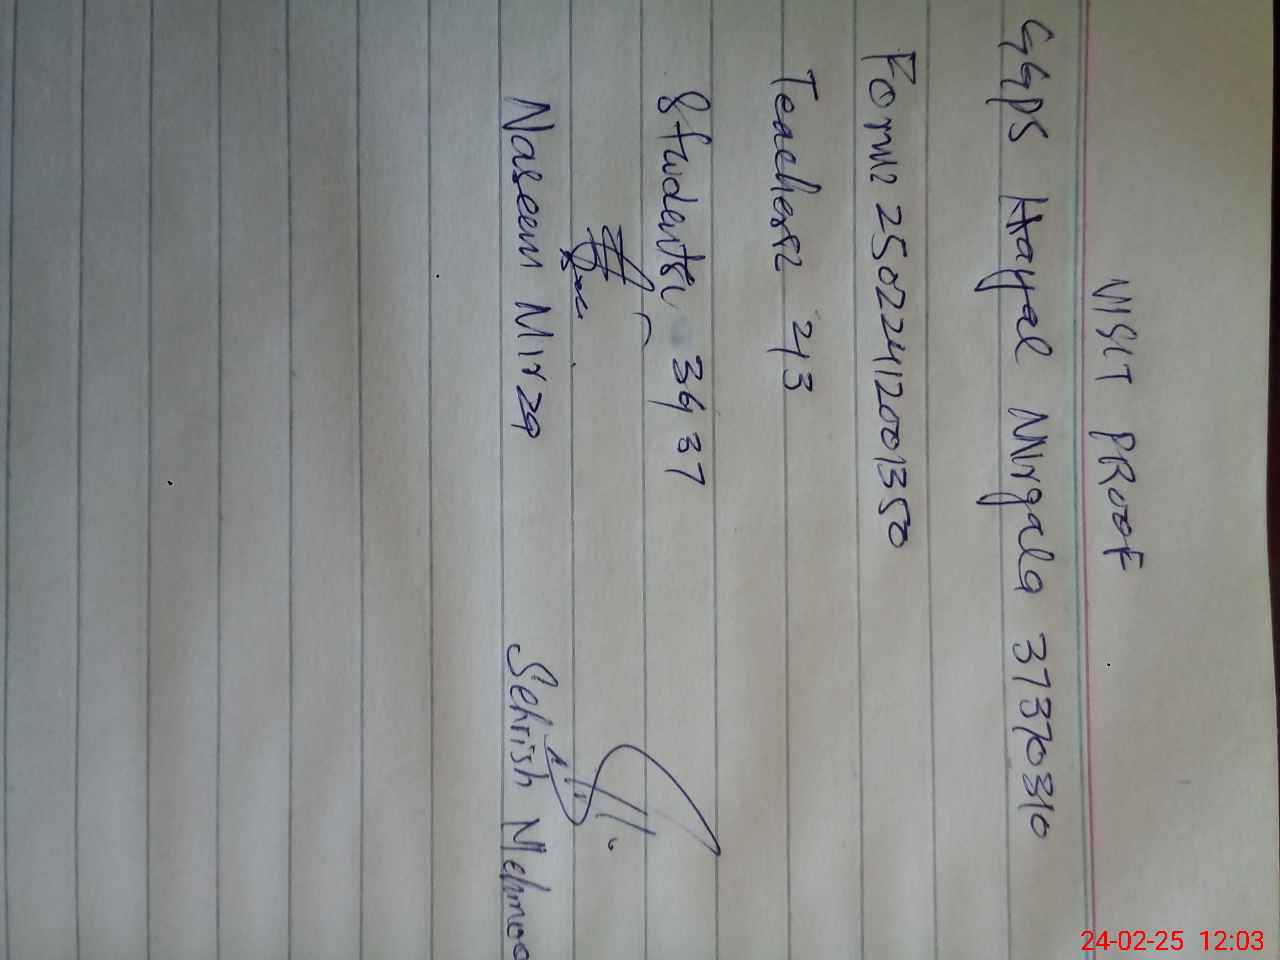 VISIT PROOF
GGPS Hayal Mirgala 37370310
Form: 25022412001350
Teachers: 2/3
Students: 34 37
Naseem Mirza Sehrish Mehmoo
24-02-25 12:03